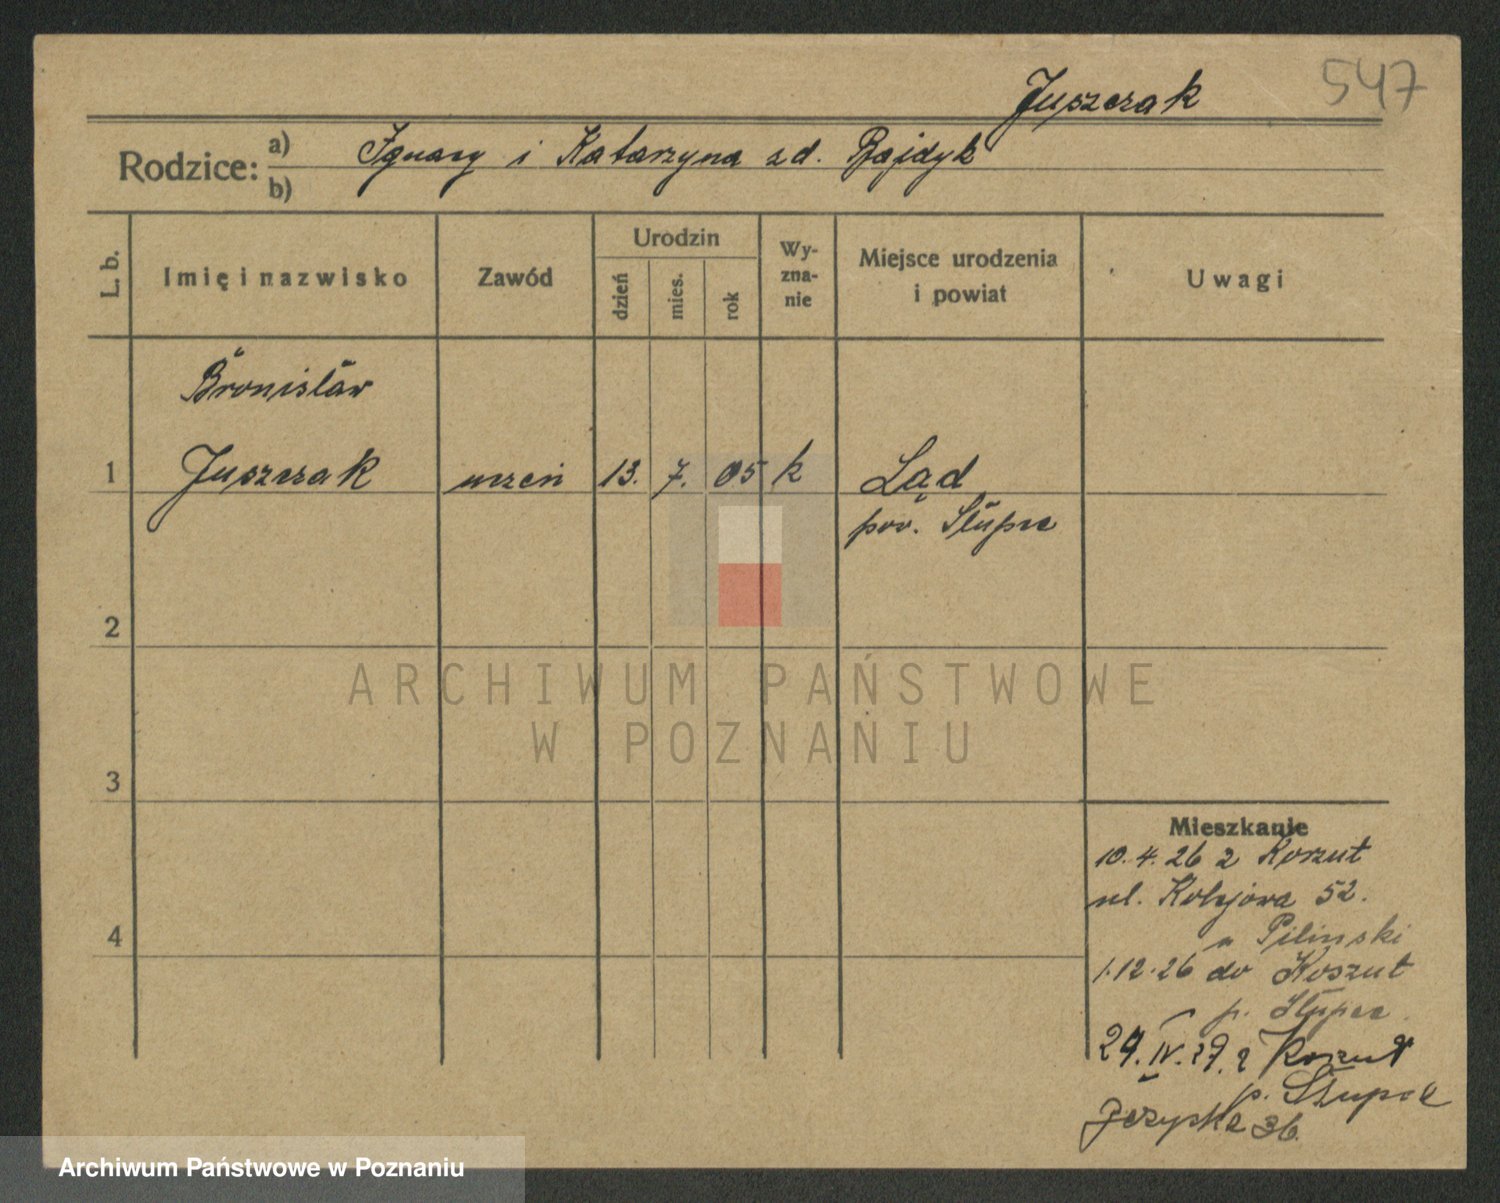 547
Juszczak
Rodzice: a) Ignacy i Katarzyna z d. Bajdyk
b)
L. b.
Imię i nazwisko
Zawód
Urodzin
dzień
mies.
rok
Wy-
zna-
nie
Miejsce urodzenia
i powiat
Uwagi
Bronisław
1 Juszczak uczeń 13. 7. 05 k Ląd
pow. Słupca
2
3
4
Mieszkanie
10.4.26 z Korzut
ul. Kolejowa 52.
u Piliński
1.12.26 do Koszut
p. Słupca
IV.
p. Słupca
36.
ARCHIWUM PAŃSTWOWE
W POZNANIU
Archiwum Państwowe w Poznaniu